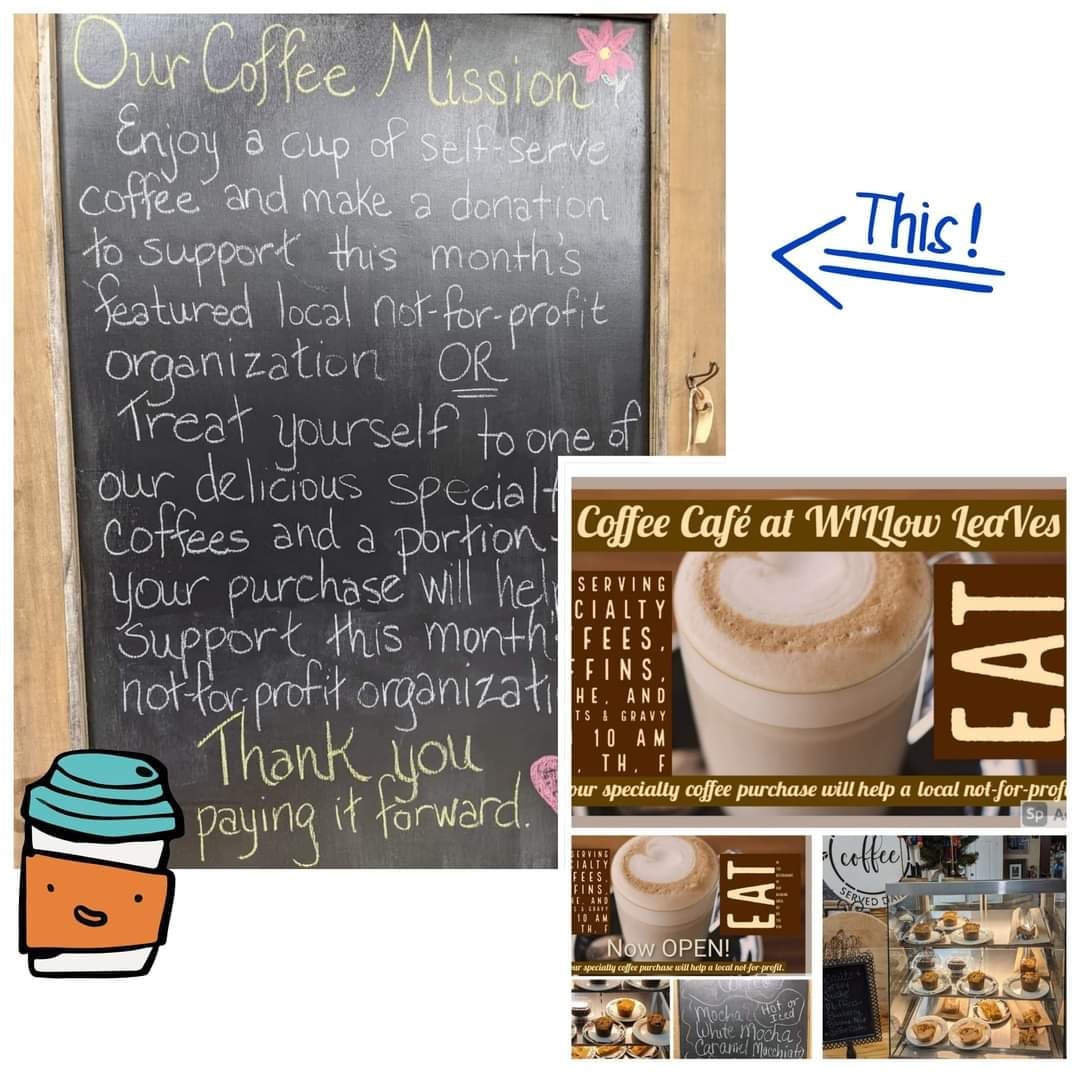 Our Coffee Mission
Enjoy a cup of self-serve
coffee and make a donation
to support this month's
featured local not-for-profit
organization OR
Treat yourself to one of
our delicious special
Coffees and a portion
your purchase will hel
support this month
not-for-profit organizati
Thank you
paying it forward.
This!
Coffee Café at WILLow LeaVes
SERVING
CIALTY
FEES,
FINS,
HE, AND
TS & GRAVY
10 AM
, TH, F
EAT
our specialty coffee purchase will help a local not-for-prof
Sp A
SERVING
CIALTY
FEES,
FINS,
HE, AND
S & GRAVY
10 AM
TH, F
EAT
Now OPEN!
ur specialty coffee purchase will help a local not-for-profit.
Coffee
Mocha
Hot or
Iced
White Mocha
Caramel Macchiato
coffee
SERVED DAI